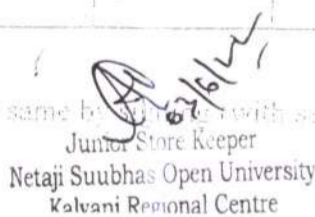 03/6/22
same by with
Junior Store Keeper
Netaji Suubhas Open University
Kalyani Regional Centre